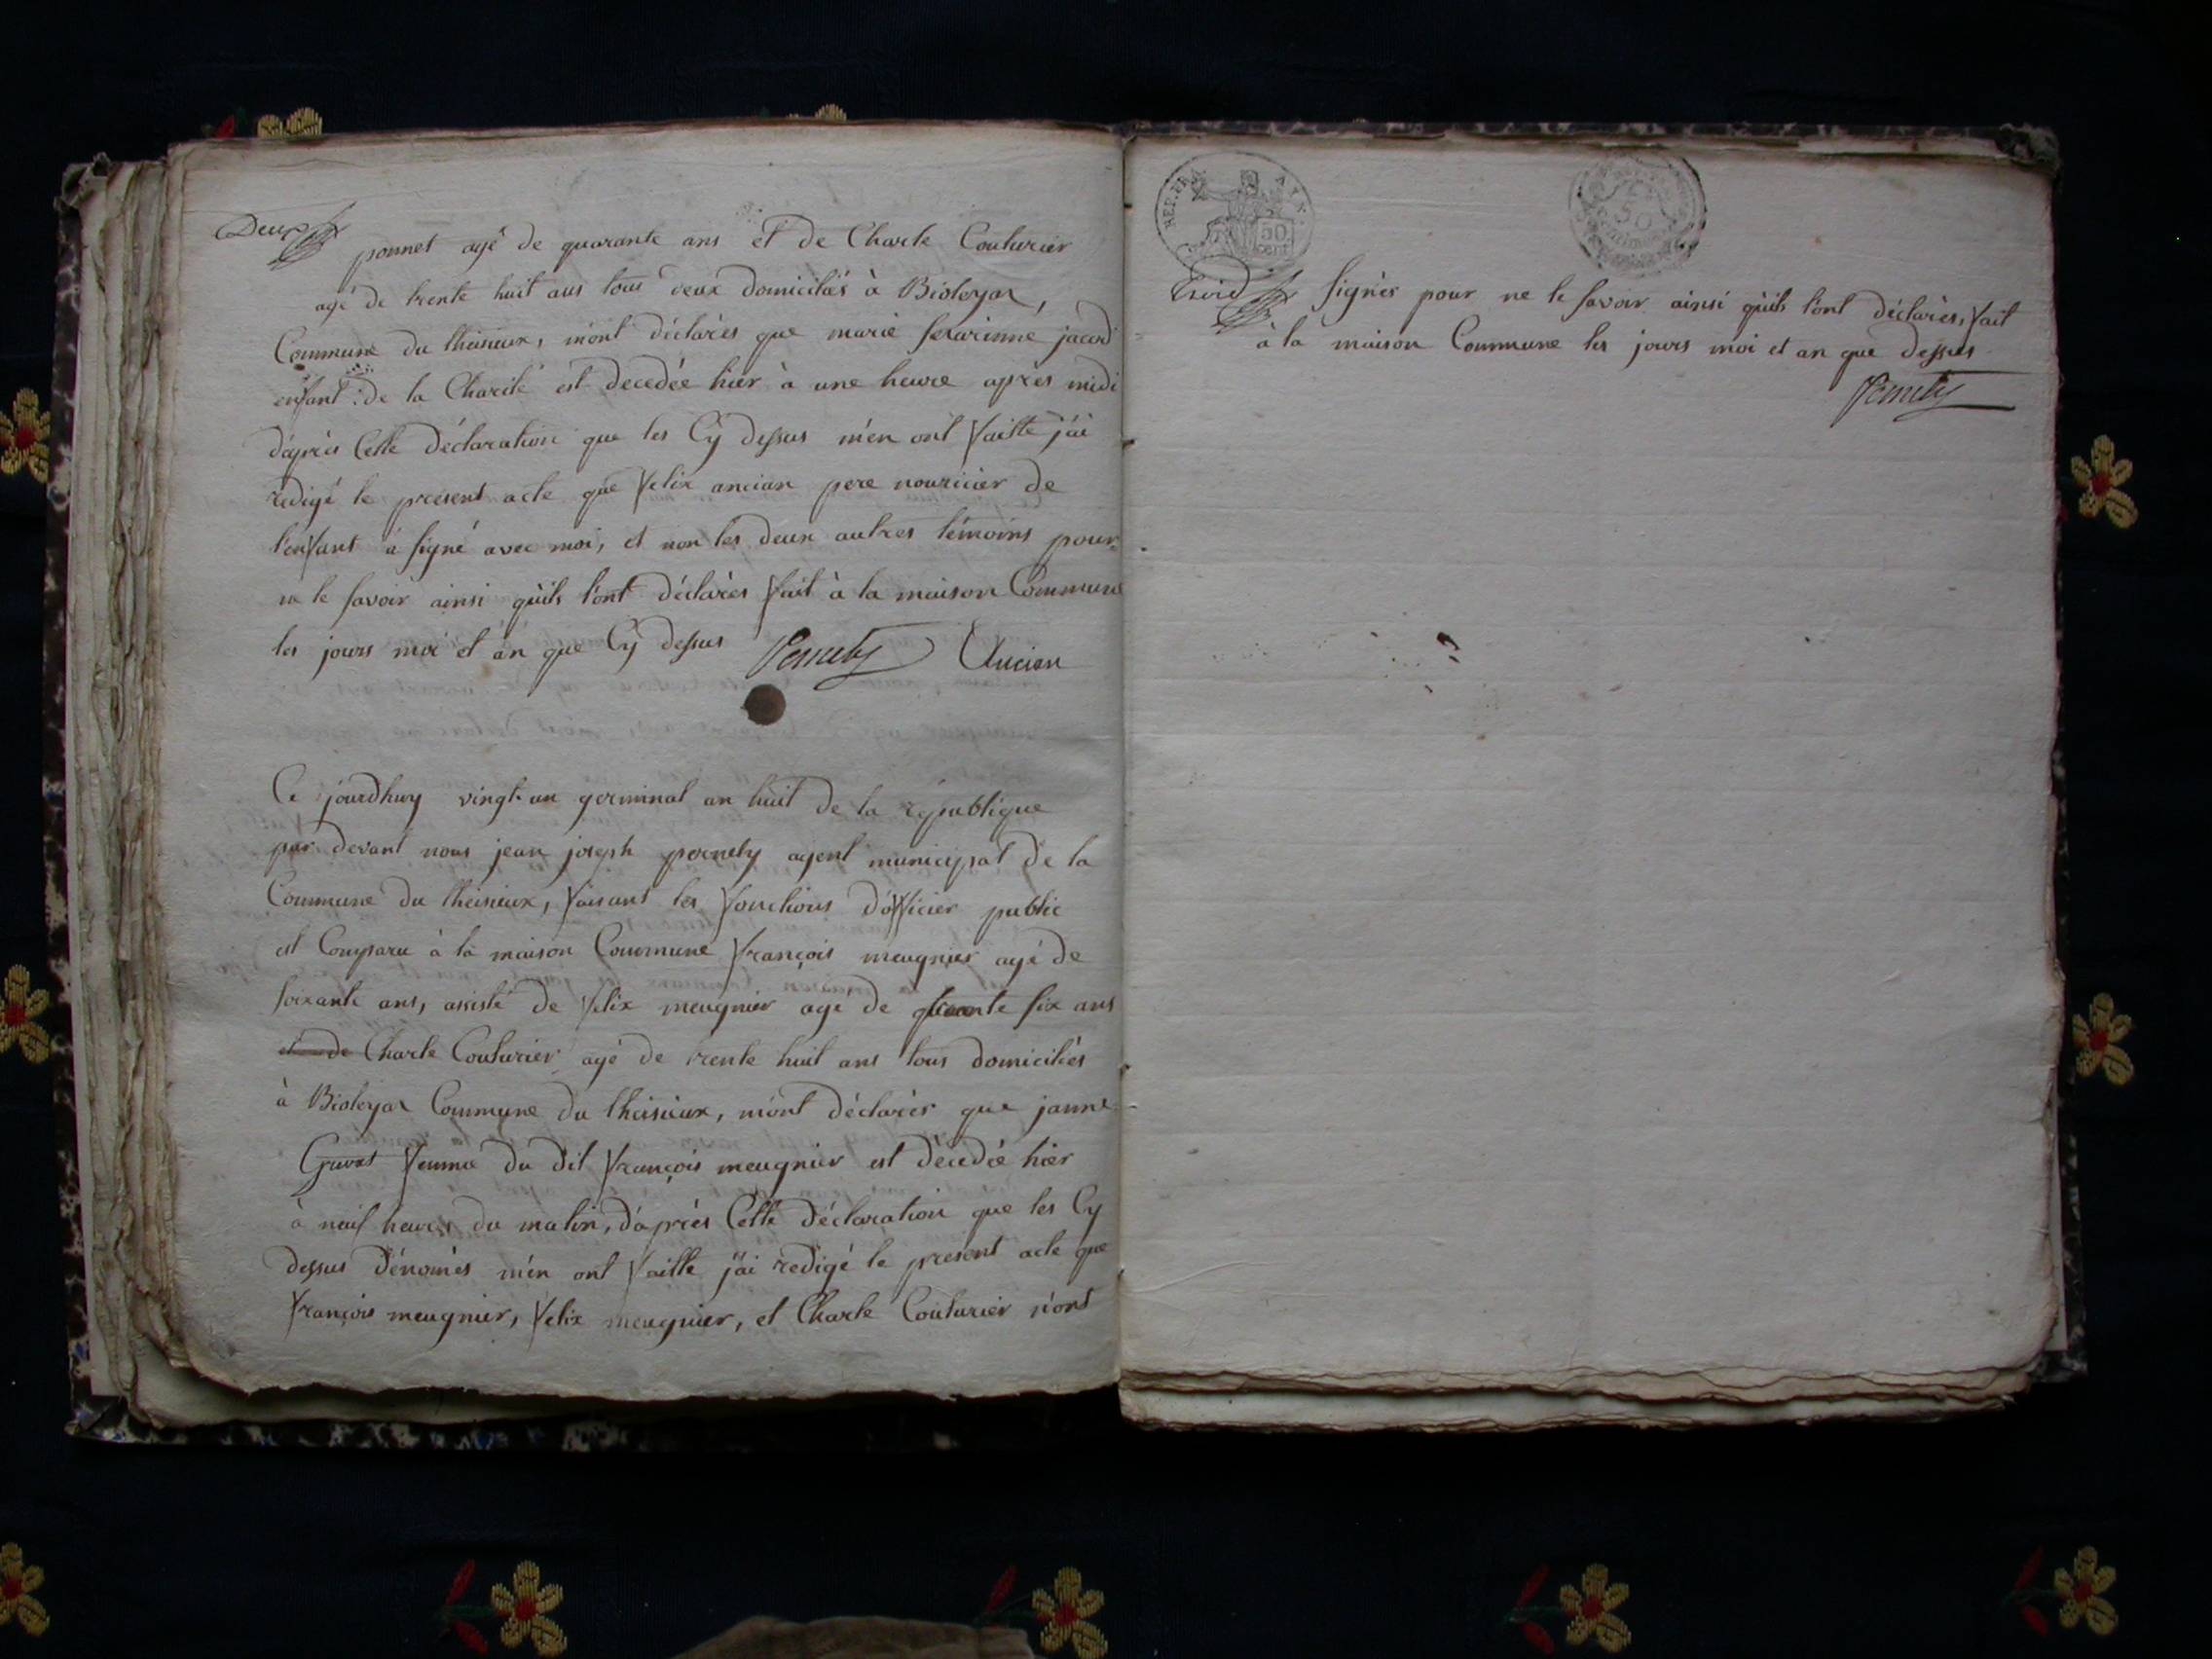 Deux
ponnet agé de quarante ans et de Charle Couturier
agé de trente huit ans tous deux domiciliés à Bioleyar,
Commune du theisieux, m'ont déclarés que marie jacod
enfant de la Charité est decedée hier à une heure après midi
d'après Cette déclaration que les Cÿ dessus m'en ont faitte j'ai
redigé le présent acte que felix ancian pere nouricier de
l'enfant a signé avec moi, et non les deux autres témoins pour
ne le savoir ainsi qu'ils l'ont déclarés fait à la maison Commune
les jours moi et an que Cÿ dessus Pernety Ancian
Ce jourdhuy vingt-un germinal an huit de la république
par devant nous jean joseph pernety agent municipal de la
Commune du theisieux, faisant les fonctions d'officier public
est Comparu à la maison Commune françois meugnier agé de
soixante ans, assisté de felix meugnier agé de six ans
et de Charle Couturier agé de trente huit ans tous domiciliés
à Bioleyar Commune du theisieux, m'ont déclarés que janne
femme du dit françois meugnier est décedée hier
à neuf heures du matin, d'après Cette déclaration que les Cy
dessus dénomés m'en ont faitte j'ai redigé le present acte que
françois meugnier, felix meugnier, et Charle Couturier n'ont
REP. FRA
50
cent
50
centimes
Trois
signés pour ne le savoir ainsi qu'ils l'ont déclarés, fait
à la maison Commune les jours moi et an que dessus
Pernety